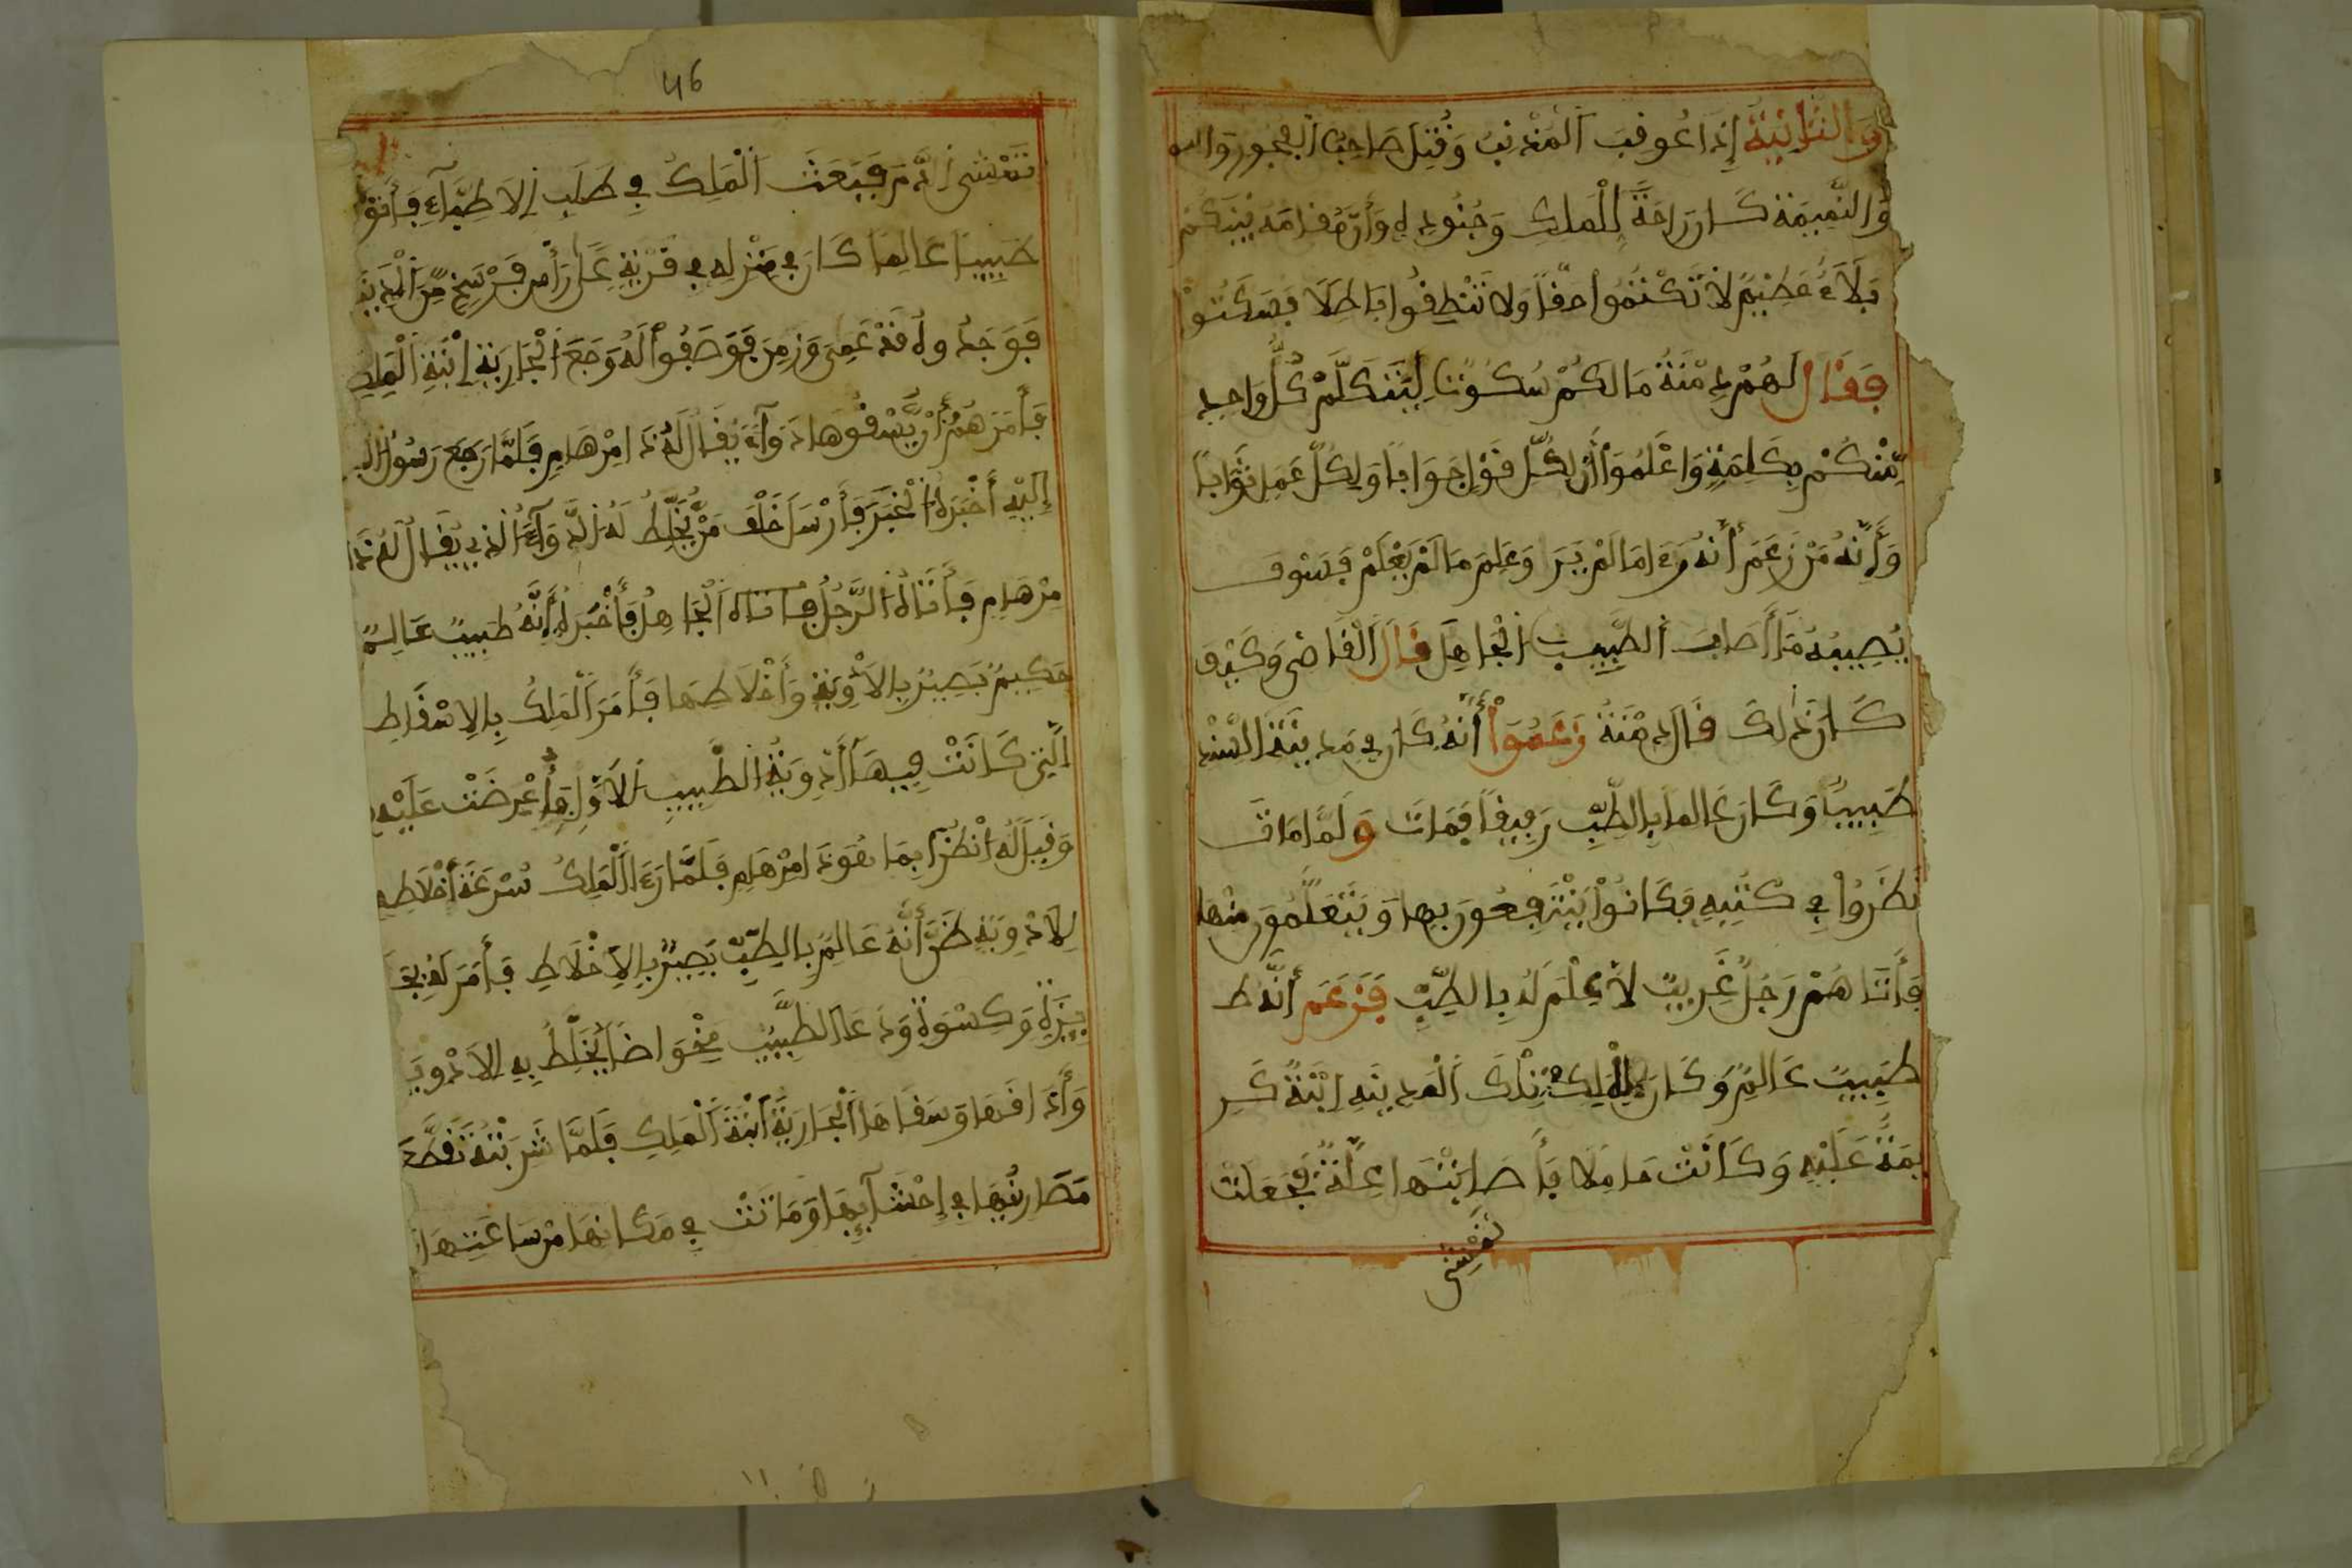 والثانية إذا عوقب المذنب وقتل صاحب الفجور
والنميمة كان راحة للملك وجنوده وأن مقامه بينكم
بلاء عظيم لا تكتموا حقا ولا تنطقوا باطلا فسكتوا
فقال لهم دمنة ما لكم سكوتا ليتكلم كل واحد
منكم بكلمة واعلموا أن لكل قول جوابا ولكل عمل ثوابا
وأنه من زعم أنه رءا ما لم ير وعلم ما لم يعلم فسوف
يصيبه ما أصاب الطبيب الجاهل قال القاضي وكيف
كان ذلك قال دمنة زعموا أنه كان في مدينة السند
طبيبا وكان عالما بالطب رفيقا فمات ولما مات
نظروا في كتبه فكانوا ينتفعون بها ويتعلمون منها
فأتاهم رجل غريب لا علم له بالطب فزعم أنه ط
طبيب عالم وكان لملك تلك المدينة ابنة كر
يمة عليه وكانت حاملا فأصابتها علة فجعلت
تمشي
46
تمشي الدم فبعث الملك في طلب الاطباء فأتوا
طبيبا عالما كان في منزله في قرية على رأس فرسخ من المدينة
فوجدوه قد عمي وزمن فوصفوا له وجع الجارية ابنة الملك
فأمرهم أن يسقوها دواء يقال له ذامرهام فلما رجع رسول
إليه أخبره الخبر فأرسل خلف من يخلط له الدواء الذي يقال له ذا
مرهام فأتاه الرجل فأتاه الجاهل فأخبره أنه طبيب عالم
حكيم بصير بالأدوية وأخلاطها فأمر الملك بالاسفاط
التي كانت فيها أدوية الطبيب الأول فأعرضت عليه
وقيل له انظر فيما هو ذامرهام فلما رءا الملك سرعة أخلاطه
لادوية ظن أنه عالم بالطب بصير بالاخلاط فأمر له بخ
ببزة وكسوة ودعا الطبيب مخواضا يخلط به الادوية
وأذافها وسقاها الجارية ابنة الملك فلما شربته تقطعـ
مصارنها في إحشائها وماتت في مكانها من ساعتها